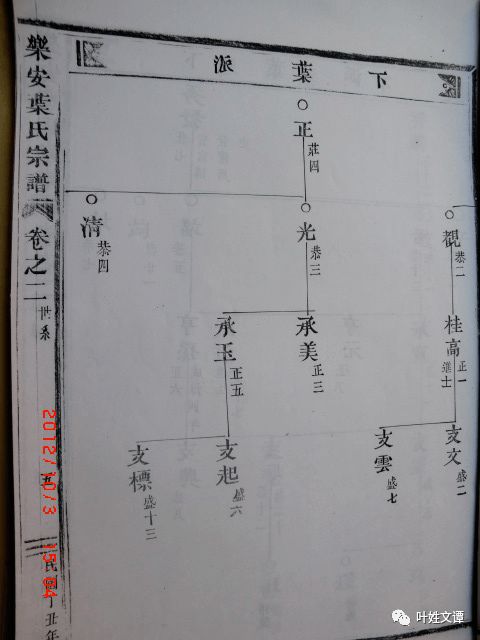 樂安葉氏宗譜
卷之二
世系
五
民國丁丑年
下葉派
正 莊四
觀 恭二
光 恭三
凊 恭四
桂高 正一 進士
承美 正三
承玉 正五
文 盛二
雲 盛七
起 盛六
標 盛十三
2012/10/3 15:04
叶姓文谭